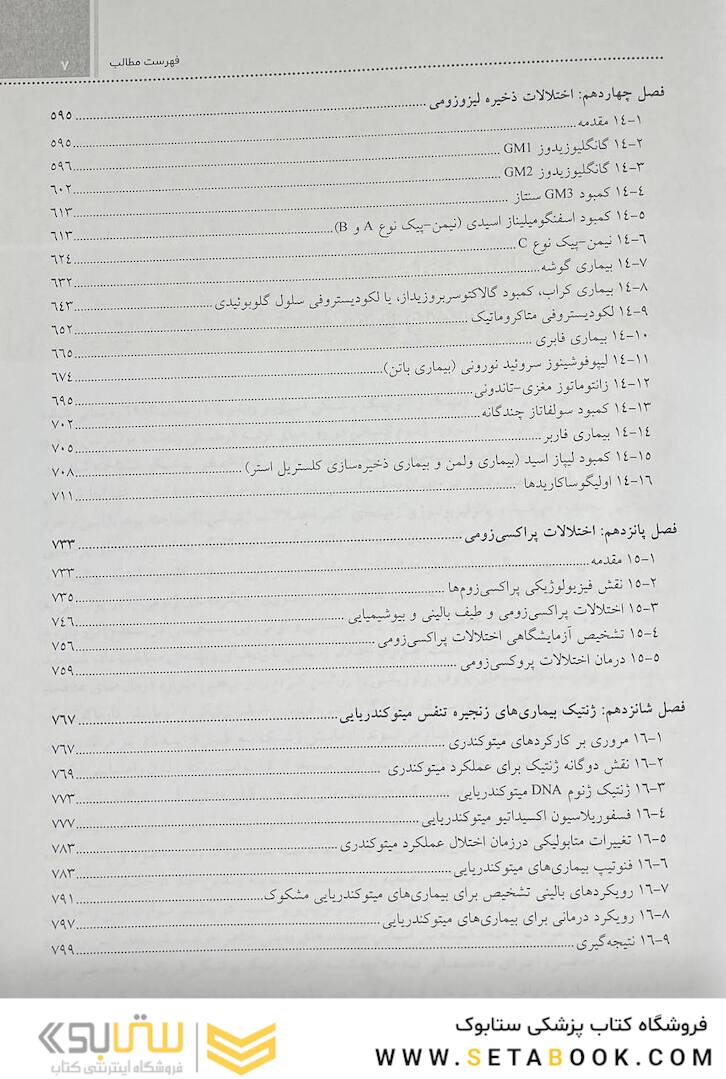 فهرست مطالب ۷
فصل چهاردهم: اختلالات ذخیره لیزوزومی ۵۹۵
۱۴-۱ مقدمه ۵۹۵
۱۴-۲ گانگلیوزیدوز GM1 ۵۹۶
۱۴-۳ گانگلیوزیدوز GM2 ۶۰۲
۱۴-۴ کمبود GM3 سنتاز ۶۱۳
۱۴-۵ کمبود اسفنگومیلیناز اسیدی (نیمن-پیک نوع A و B) ۶۱۳
۱۴-۶ نیمن-پیک نوع C ۶۲۴
۱۴-۷ بیماری گوشه ۶۳۲
۱۴-۸ بیماری کراب، کمبود گالاکتوسربروزیداز، یا لکودیستروفی سلول گلوبوئیدی ۶۴۳
۱۴-۹ لکودیستروفی متاکروماتیک ۶۵۲
۱۴-۱۰ بیماری فابری ۶۶۵
۱۴-۱۱ لیپوفوشینوز سروئید نورونی (بیماری باتن) ۶۷۴
۱۴-۱۲ زانتوماتوز مغزی-تاندونی ۶۹۵
۱۴-۱۳ کمبود سولفاتاز چندگانه ۷۰۲
۱۴-۱۴ بیماری فاربر ۷۰۵
۱۴-۱۵ کمبود لیپاز اسید (بیماری ولمن و بیماری ذخیره‌سازی کلستریل استر) ۷۰۸
۱۴-۱۶ اولیگوساکاریدها ۷۱۱
فصل پانزدهم: اختلالات پراکسی‌زومی ۷۳۳
۱۵-۱ مقدمه ۷۳۳
۱۵-۲ نقش فیزیولوژیکی پراکسی‌زوم‌ها ۷۳۵
۱۵-۳ اختلالات پراکسی‌زومی و طیف بالینی و بیوشیمیایی ۷۴۶
۱۵-۴ تشخیص آزمایشگاهی اختلالات پراکسی‌زومی ۷۵۶
۱۵-۵ درمان اختلالات پروکسی‌زومی ۷۵۹
فصل شانزدهم: ژنتیک بیماری‌های زنجیره تنفس میتوکندریایی ۷۶۷
۱۶-۱ مروری بر کارکردهای میتوکندری ۷۶۷
۱۶-۲ نقش دوگانه ژنتیک برای عملکرد میتوکندری ۷۶۹
۱۶-۳ ژنتیک ژنوم DNA میتوکندریایی ۷۷۳
۱۶-۴ فسفوریلاسیون اکسیداتیو میتوکندریایی ۷۷۷
۱۶-۵ تغییرات متابولیکی درزمان اختلال عملکرد میتوکندری ۷۸۳
۱۶-۶ فنوتیپ بیماری‌های میتوکندریایی ۷۸۳
۱۶-۷ رویکردهای بالینی تشخیص برای بیماری‌های میتوکندریایی مشکوک ۷۹۱
۱۶-۸ رویکرد درمانی برای بیماری‌های میتوکندریایی ۷۹۷
۱۶-۹ نتیجه‌گیری ۷۹۹
فروشگاه کتاب پزشکی ستابوک
WWW.SETABOOK.COM
ستابوک
فروشگاه اینترنتی کتاب